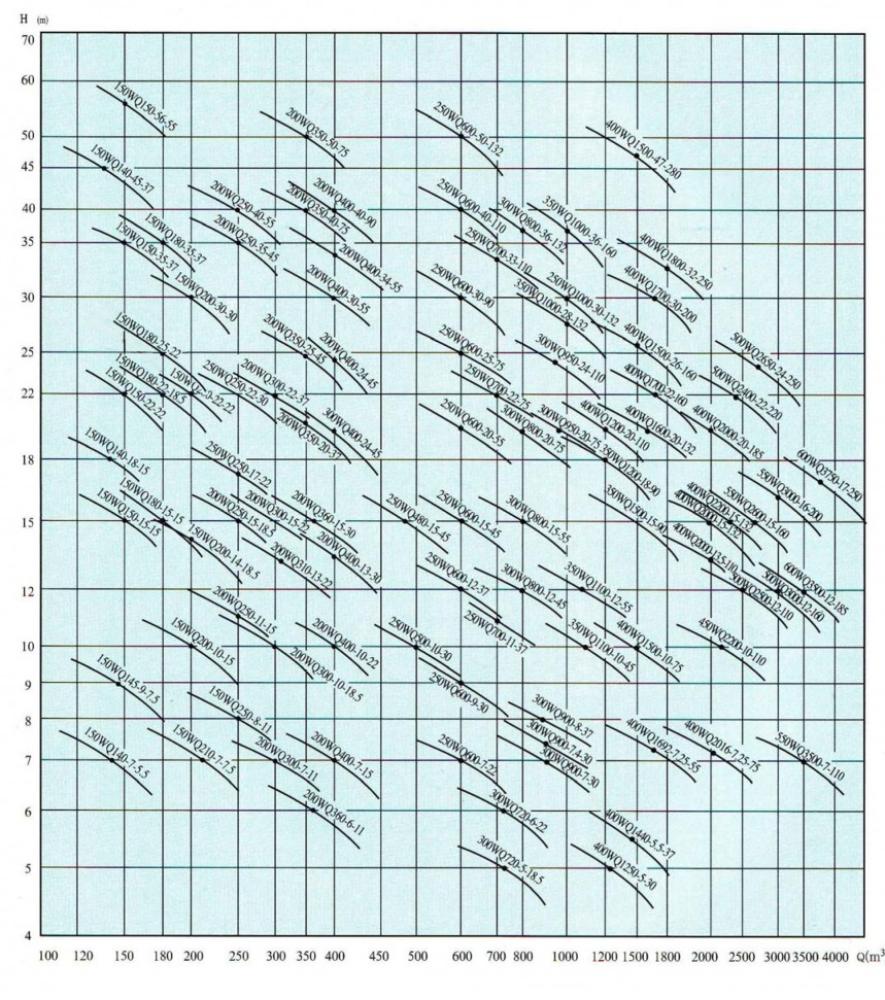 H (m)
70
60
150WQ150-56-55
200WQ350-50-75
250WQ600-50-132
400WQ1500-47-280
50
45
150WQ140-45-37
200WQ250-40-55
200WQ350-40-75
200WQ400-40-90
250WQ600-40-110
300WQ800-36-132
350WQ1000-36-160
40
150WQ150-35-37
150WQ180-35-37
200WQ250-35-45
200WQ400-34-55
250WQ700-33-110
400WQ1800-32-250
35
150WQ200-30-30
200WQ400-30-55
250WQ600-30-90
350WQ1000-28-132
250WQ1000-30-132
400WQ1700-30-200
30
150WQ180-25-22
200WQ350-25-45
200WQ400-24-45
250WQ600-25-75
300WQ950-24-110
400WQ1500-26-160
500WQ2650-24-250
25
150WQ150-22-22
150WQ180-22-18.5
250WQ250-22-30
200WQ300-22-37
250WQ700-22-75
400WQ1700-22-160
500WQ2400-22-220
22
200WQ350-20-37
300WQ400-24-45
250WQ600-20-55
300WQ800-20-75
300WQ950-20-75
400WQ1200-20-110
400WQ1600-20-132
400WQ2000-20-185
18
150WQ140-18-15
200WQ250-17-22
350WQ1200-18-90
550WQ3000-16-200
600WQ3750-17-250
15
150WQ150-15-15
150WQ180-15-15
200WQ250-15-18.5
200WQ300-15-22
200WQ360-15-30
250WQ480-15-45
250WQ600-15-45
300WQ800-15-55
350WQ1500-15-90
400WQ2200-15-132
550WQ2600-15-160
150WQ200-14-18.5
200WQ310-13-22
200WQ400-13-30
400WQ2000-13-110
12
250WQ600-12-37
300WQ800-12-45
350WQ1100-12-55
500WQ2500-12-110
600WQ3500-12-185
150WQ200-10-15
200WQ250-11-15
250WQ700-11-37
10
200WQ300-10-18.5
200WQ400-10-22
250WQ500-10-30
350WQ1100-10-45
400WQ1500-10-75
450WQ2200-10-110
9
150WQ145-9-7.5
250WQ600-9-30
8
150WQ250-8-11
300WQ900-8-37
300WQ900-7.4-30
7
150WQ140-7-5.5
150WQ210-7-7.5
200WQ300-7-11
200WQ400-7-15
250WQ600-7-22
400WQ1692-7.25-55
400WQ2016-7.25-75
550WQ3500-7-110
6
200WQ360-6-11
300WQ720-6-22
400WQ1440-5.5-37
5
300WQ720-5-18.5
400WQ1250-5-30
4
100 120 150 180 200 250 300 350 400 450 500 600 700 800 1000 1200 1500 1800 2000 2500 3000 3500 4000 Q(m³